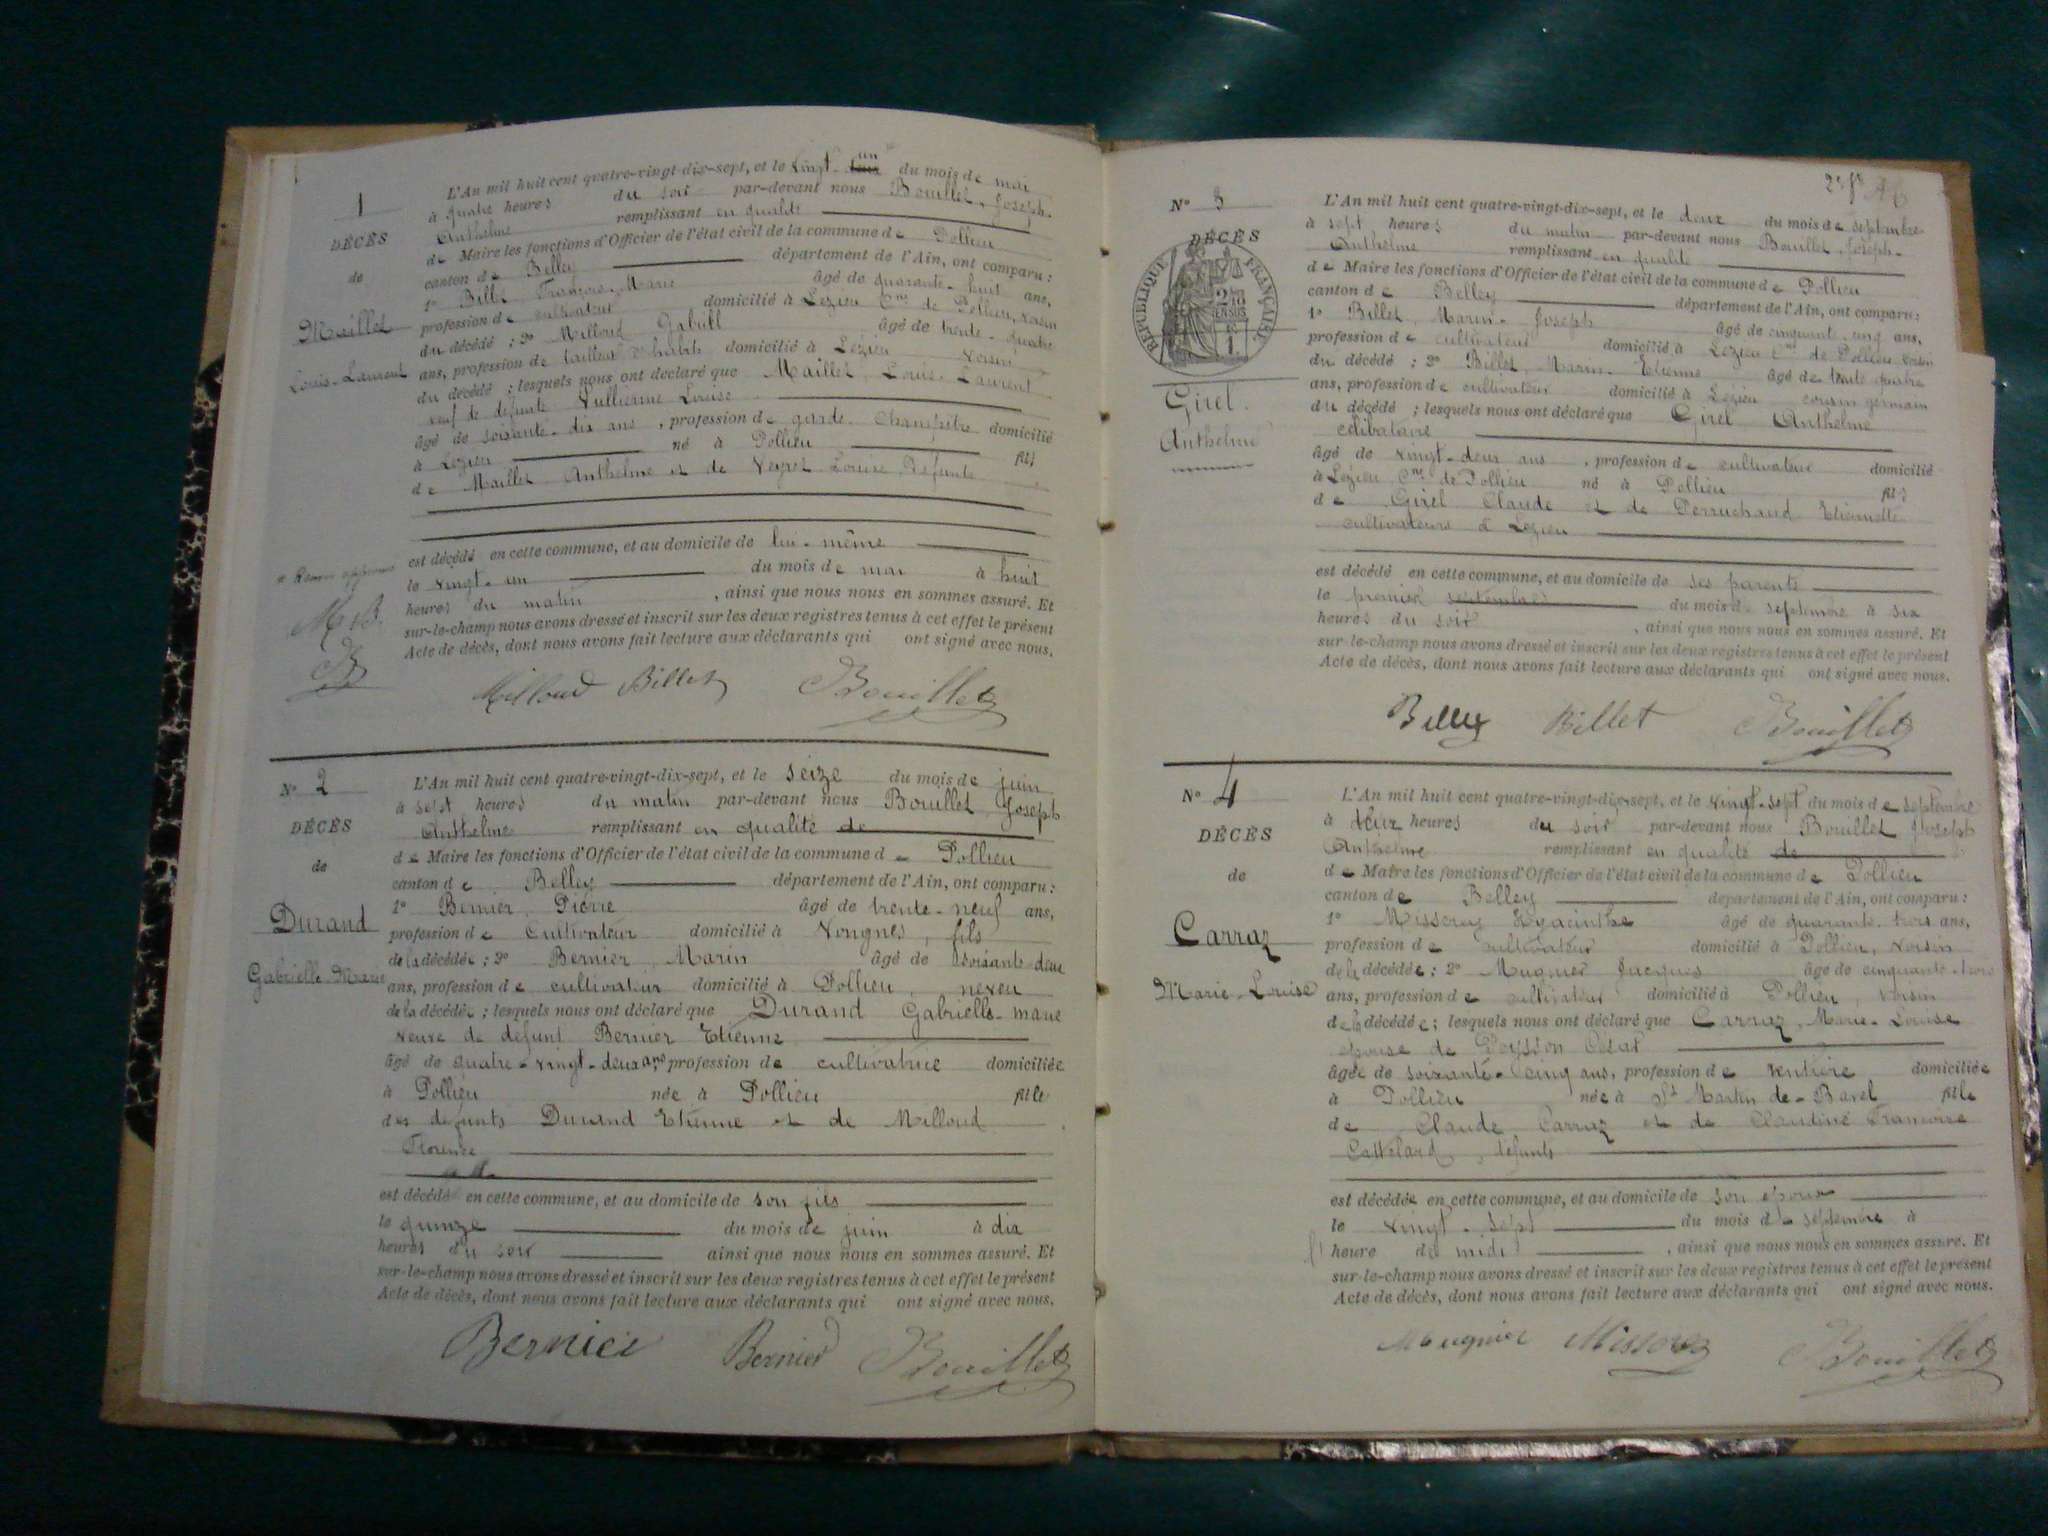 1
DÉCÈS
de
Maillet
Louis-Laurent
L'An mil huit cent quatre-vingt-dix-sept, et le vingt-un du mois de mai
à quatre heures du soir par-devant nous Bouillet, Joseph-
Anthelme remplissant en qualité
de Maire les fonctions d'Officier de l'état civil de la commune de Pollieu
canton de Belley département de l'Ain, ont comparu :
1° Billet François-Marie âgé de quarante-huit ans,
profession de cultivateur domicilié à Lezieu Cne de Pollieu, voisin
du décédé ; 2° Milloud Gabriel âgé de trente-quatre
ans, profession de tailleur d'habits domicilié à Lézieu voisin
du décédé ; lesquels nous ont déclaré que Maillet, Louis-Laurent
veuf de défunte Vullierme Louise
âgé de soixante-dix ans, profession de garde-champêtre domicilié
à Lezieu né à Pollieu fils
de Maillet Anthelme et de Veyret Louise défunts
est décédé en cette commune, et au domicile de lui-même
le vingt-un du mois de mai à huit
heures du matin, ainsi que nous nous en sommes assuré. Et
sur-le-champ nous avons dressé et inscrit sur les deux registres tenus à cet effet le présent
Acte de décès, dont nous avons fait lecture aux déclarants qui ont signé avec nous.
M B.
B
Milloud Billet Bouillet
N° 2
DÉCÈS
de
Durand
Gabrielle-Marie
L'An mil huit cent quatre-vingt-dix-sept, et le seize du mois de juin
à sept heures du matin par-devant nous Bouillet Joseph
Anthelme remplissant en qualité de
de Maire les fonctions d'Officier de l'état civil de la commune de Pollieu
canton de Belley département de l'Ain, ont comparu :
1° Bernier, Pierre âgé de trente-neuf ans,
profession de cultivateur domicilié à Vongnes, fils
de la décédée ; 2° Bernier, Marin âgé de soixante-deux
ans, profession de cultivateur domicilié à Pollieu, neveu
de la décédée ; lesquels nous ont déclaré que Durand Gabrielle-marie
veuve de défunt Bernier Etienne
âgé de quatre-vingt-deux ans profession de cultivatrice domiciliée
à Pollieu née à Pollieu fille
des défunts Durand Etienne et de Milloud
Florence
est décédé en cette commune, et au domicile de son fils
le quinze du mois de juin à dix
heures du soir ainsi que nous nous en sommes assuré. Et
sur-le-champ nous avons dressé et inscrit sur les deux registres tenus à cet effet le présent
Acte de décès, dont nous avons fait lecture aux déclarants qui ont signé avec nous.
Bernier Bernier Bouillet
N° 3
DÉCÈS
RÉPUBLIQUE FRANÇAISE
Girel
Anthelme
L'An mil huit cent quatre-vingt-dix-sept, et le deux du mois de septembre
à sept heures du matin par-devant nous Bouillet, Joseph-
Anthelme remplissant en qualité
de Maire les fonctions d'Officier de l'état civil de la commune de Pollieu
canton de Belley département de l'Ain, ont comparu :
1° Billet, Marin-Joseph âgé de cinquante-cinq ans,
profession de cultivateur domicilié à Lezieu Cne de Pollieu voisin
du décédé ; 2° Billet, Marin-Etienne âgé de trente quatre
ans, profession de cultivateur domicilié à Lézieu cousin germain
du décédé ; lesquels nous ont déclaré que Girel Anthelme
célibataire
âgé de vingt-deux ans, profession de cultivateur domicilié
à Lézieu Cne de Pollieu né à Pollieu fils
de Girel Claude et de Perruchaud Etiennette
cultivateurs à Lezieu
est décédé en cette commune, et au domicile de ses parents
le premier septembre du mois de septembre à six
heures du soir, ainsi que nous nous en sommes assuré. Et
sur-le-champ nous avons dressé et inscrit sur les deux registres tenus à cet effet le présent
Acte de décès, dont nous avons fait lecture aux déclarants qui ont signé avec nous.
Billet Billet Bouillet
N° 4
DÉCÈS
de
Carraz
Marie-Louise
L'An mil huit cent quatre-vingt-dix-sept, et le vingt-sept du mois de septembre
à deux heures du soir par-devant nous Bouillet Joseph
Anthelme remplissant en qualité de
de Maire les fonctions d'Officier de l'état civil de la commune de Pollieu
canton de Belley département de l'Ain, ont comparu :
1° Misserey Hyacinthe âgé de quarante-trois ans,
profession de cultivateur domicilié à Pollieu, voisin
de la décédée ; 2° Mugnier Jacques âgé de cinquante-trois
ans, profession de cultivateur domicilié à Pollieu, voisin
de la décédée ; lesquels nous ont déclaré que Carraz, Marie-Louise
épouse de Peysson César
âgée de soixante-cinq ans, profession de rentière domiciliée
à Pollieu née à St Martin-de-Bavel fille
de Claude Carraz et de Claudine Françoise
Cattelard, défunts
est décédée en cette commune, et au domicile de son époux
le vingt-sept du mois de septembre à
heure de midi, ainsi que nous nous en sommes assuré. Et
sur-le-champ nous avons dressé et inscrit sur les deux registres tenus à cet effet le présent
Acte de décès, dont nous avons fait lecture aux déclarants qui ont signé avec nous.
Mougnier Misserey Bouillet